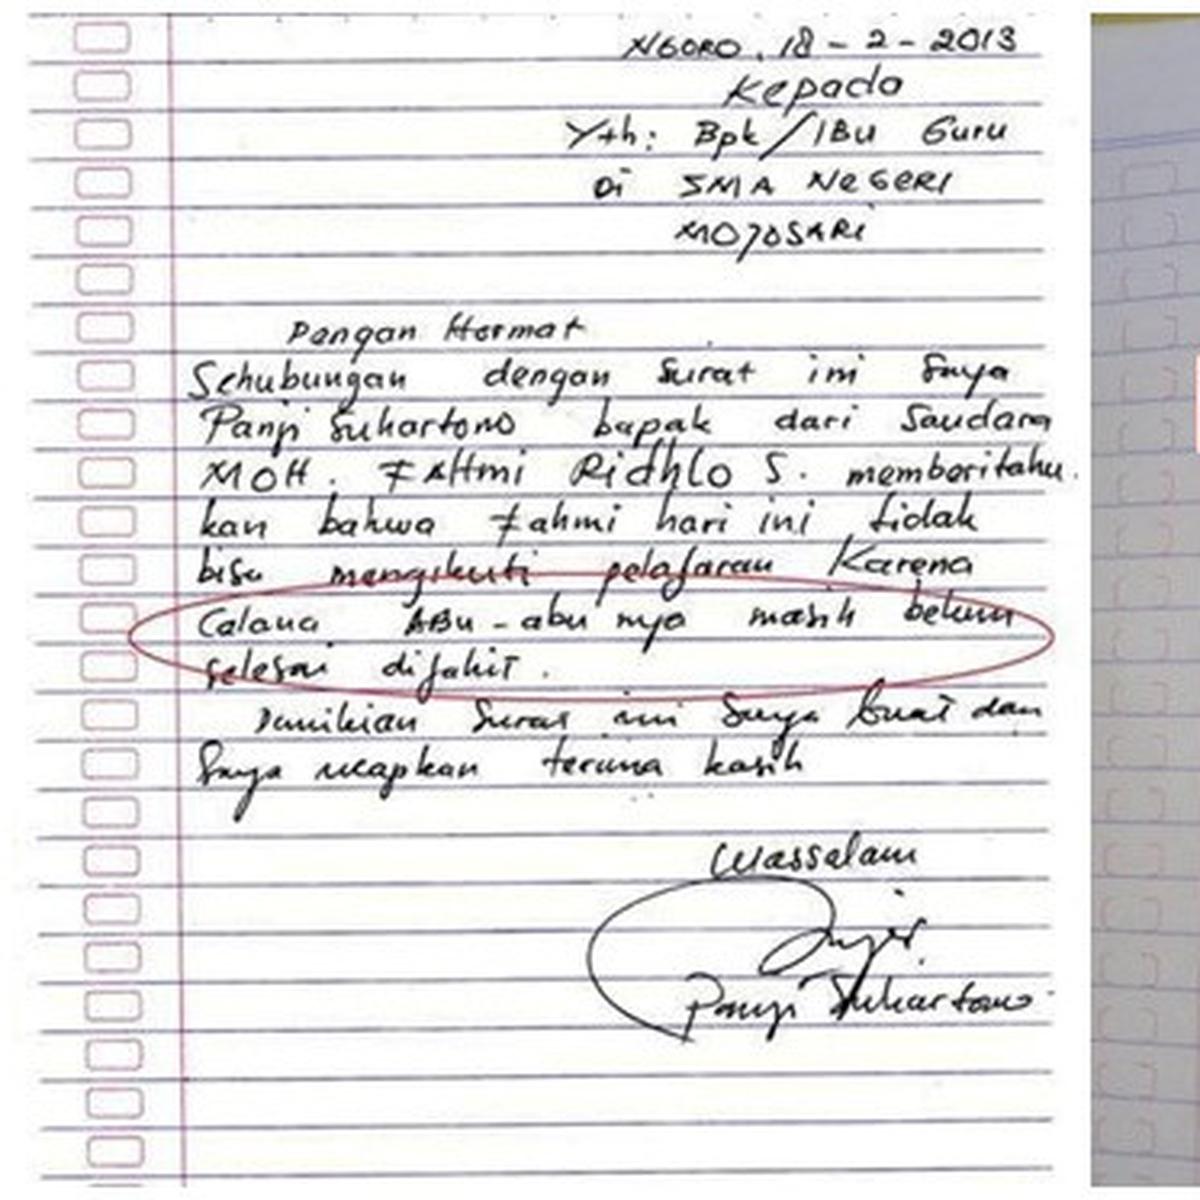 NGORO, 18 - 2 - 2013
Kepada
Yth: Bpk/IBu Guru
Di SMA NEGERI
MOJOSARI
Dengan Hormat
Sehubungan dengan Surat ini Saya
Panji Suhartono bapak dari Saudara
MOH. FAHmi Ridhlo S. memberitahu
kan bahwa Fahmi hari ini tidak
bisa mengikuti pelajaran Karena
Celana ABu-abu nya masih belum
selesai dijahit.
Demikian Surat ini Saya buat dan
Saya ucapkan terima kasih
Wassalam
Panji Suhartono